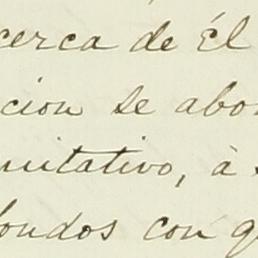 cerca de Él
cion se abo
uitativo, à
fondos con q